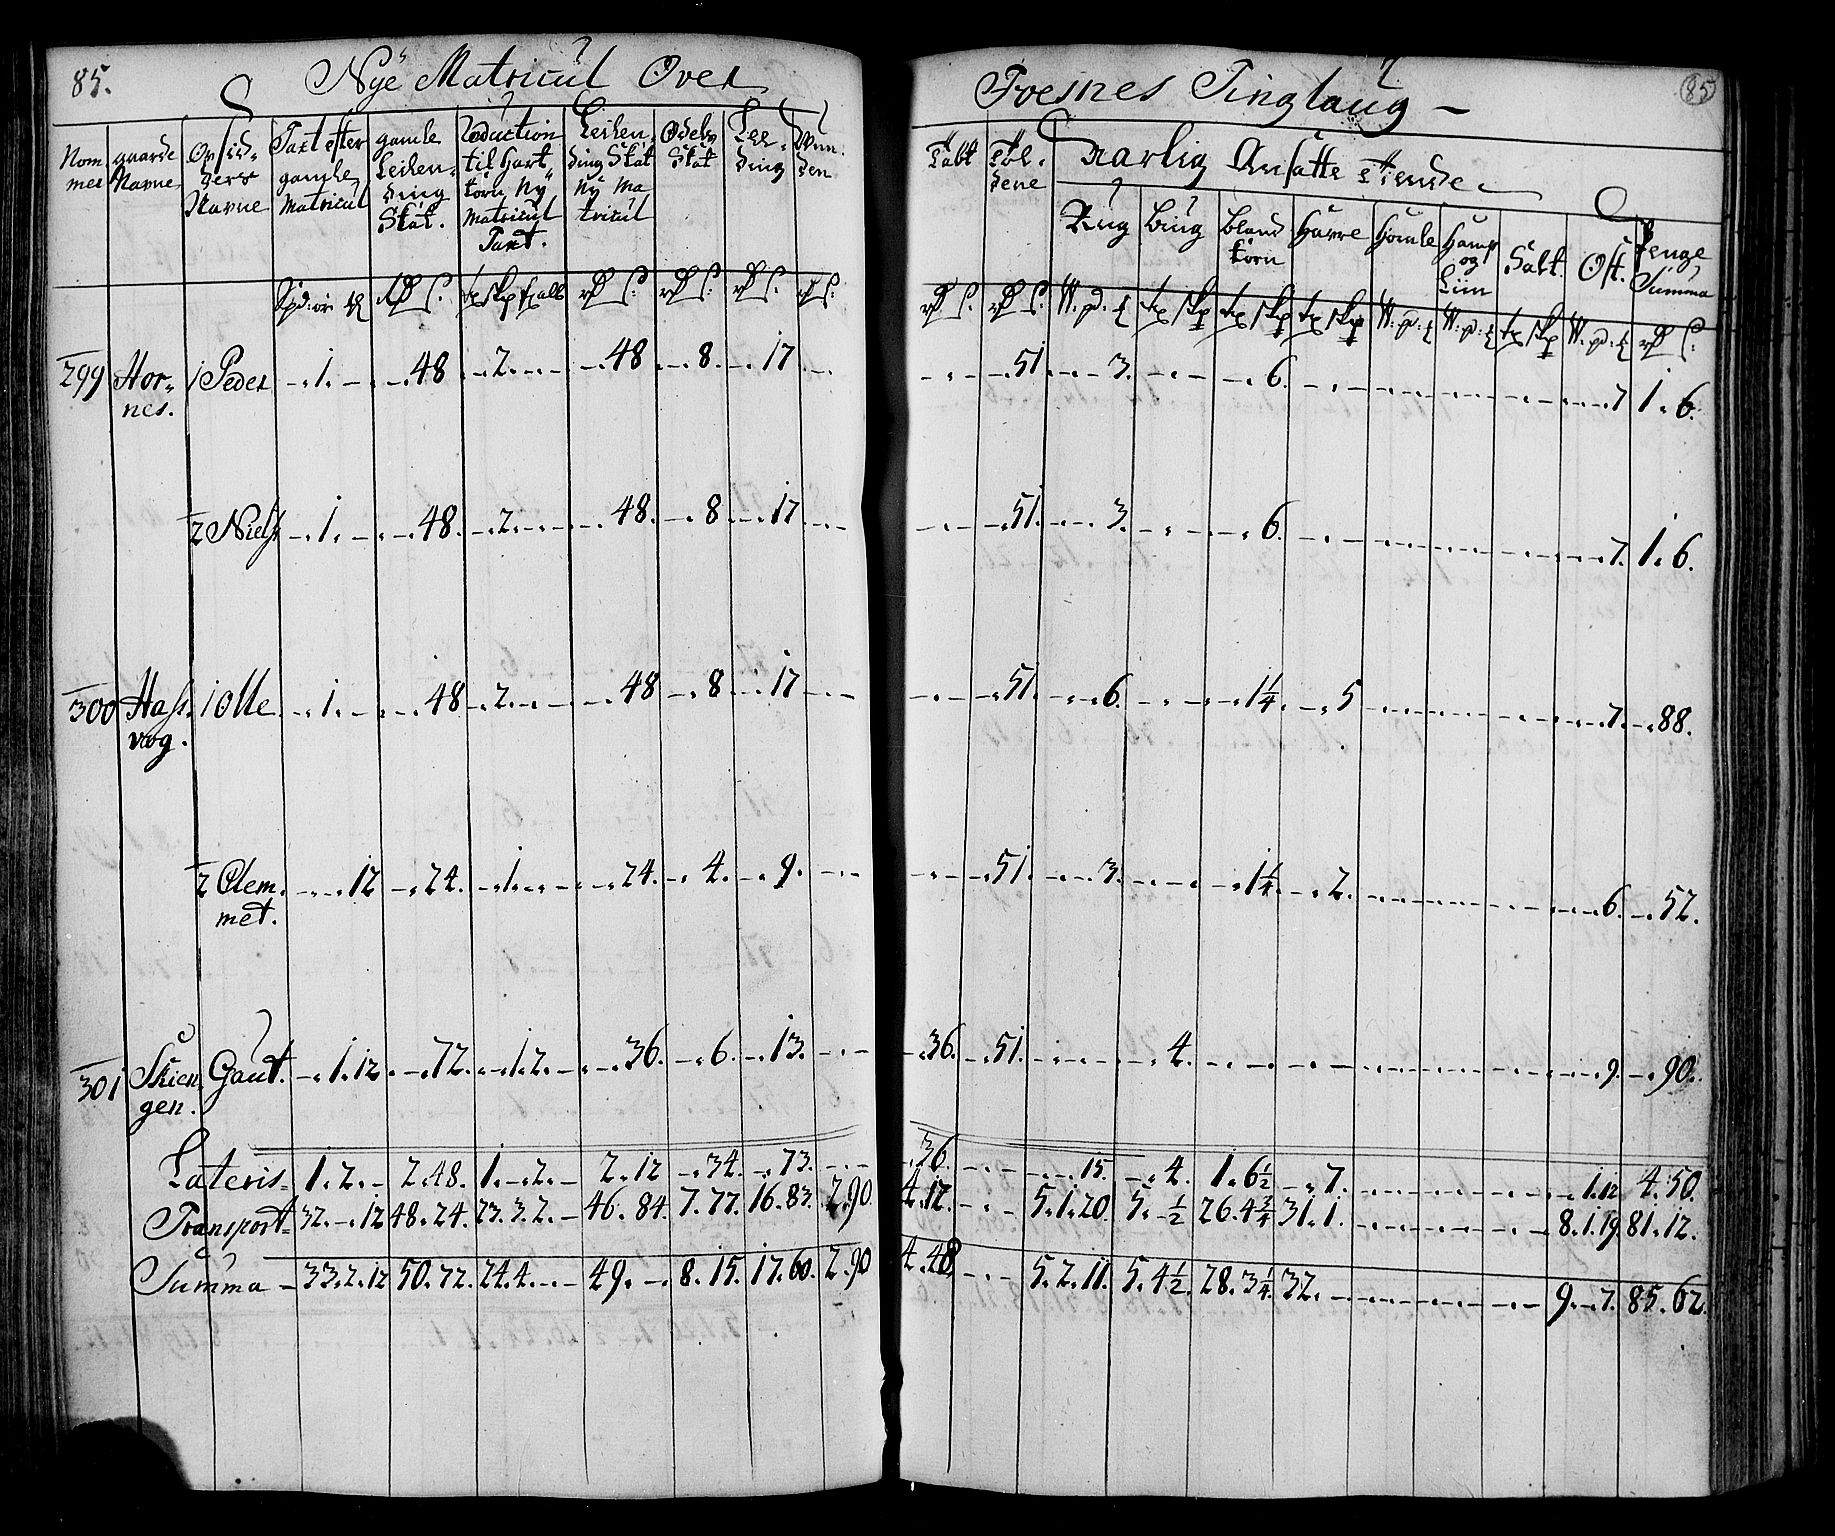 85.
Nye Matricul Over Foesnes Tinglaug
85
Nom mer | gaarde Navne | Navne | Taxt efter gamle Matricul | gamle Leilen- ding Skat. | Reduction til Hart korn Ny Matricul Taxt. | Leilen- ding Skat Ny Ma tricul | Odels Skat | Lee- ding
Aarlig Ansatte Tiende
Rug | Biug | Bland korn | Havre | Homle | Hamp og Liin | Salt. | Ost. | Penge Summa
299 Hor- 1 Peder 1. 48 2. 48 8. 17 51 3. 6. 7 1. 6.
nes.
2 Niels 1. 48. 2. 48. 8 17 51. 3. 6. 7. 1. 6.
300 Hass- 1 Olle 1. 48 2. 48 8 17 51. 6. 1¼ 5 7. 88.
vog.
2 Clem- 12 24. 1. 24. 4. 9. 51. 3. 1¼ 2. 6. 52.
met.
301 Skien- Gaut. 1. 12 72. 1. 2. 36. 6. 13. 36. 51. 4. 9. 90.
gen.
Lateris 1. 2. 2. 48. 1. 2. 2. 12 34. 73. 36. 15. 4. 1. 6½ 7. 1. 12 4. 50.
Transport 32. 12 48. 24. 23. 3. 2. 46. 84. 7. 77. 16. 83. 2. 90. 4. 12. 5. 1. 20. 5. ½ 26. 4¾ 31. 1. 8. 1. 19. 81. 12.
Summa 33. 2. 12 50. 72. 24. 4. 49. 8. 15. 17. 60. 2. 90 4. 48 5. 2. 11. 5. 4½. 28. 3¼. 32. 9. 7. 85. 62.